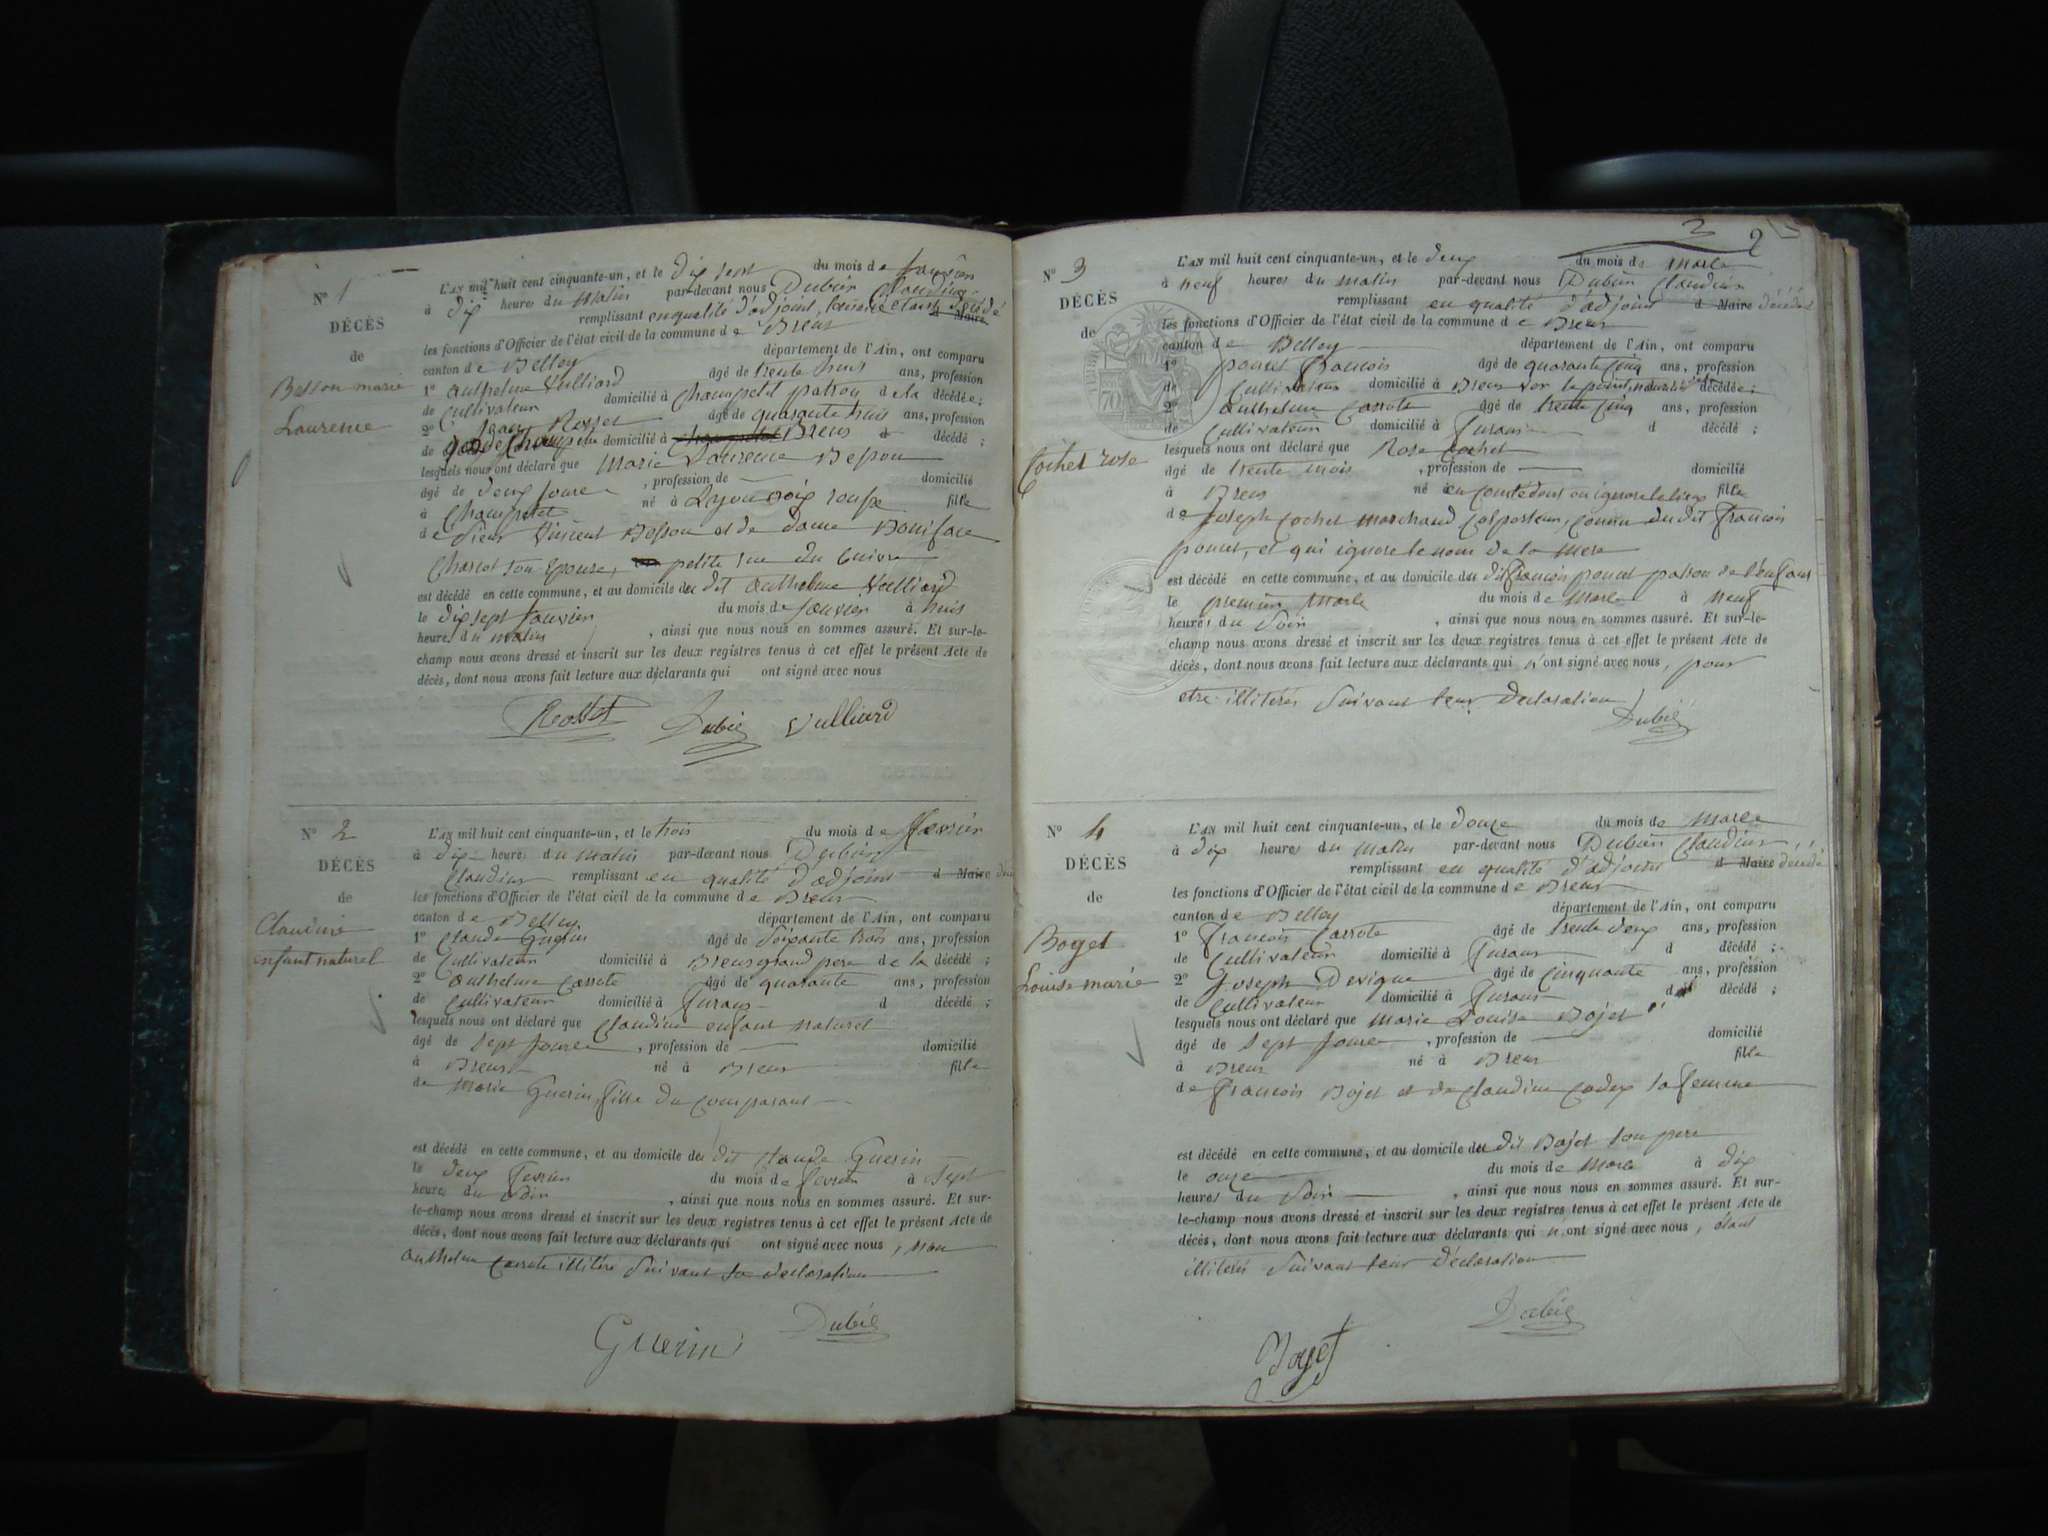 N° 1
DÉCÈS
de
Besson marie
Laurence
L'AN mil huit cent cinquante-un, et le dix sept du mois de janvier
à dix heures du matin par-devant nous Dubier Claudius
remplissant en qualité d'adjoint, le maire étant décédé d Maire
les fonctions d'Officier de l'état civil de la commune de Brens
canton de Belley département de l'Ain, ont comparu
1° Anthelme Vulliard âgé de trente huit ans, profession
de Cultivateur domicilié à Champtel patron de la décédée;
2° Jean Rosset âgé de quarante huit ans, profession
de garde Champêtre domicilié à Brens d décédé;
lesquels nous ont déclaré que Marie Laurence Besson
âgé de deux jours, profession de — domicilié
à Champtel né à Lyon fille
de Sieur Vincent Besson et de dame Boniface
Charlot son épouse, petite rue du Cuivre
est décédé en cette commune, et au domicile du dit Anthelme Vulliard
le dix sept janvier du mois de janvier à huit
heures du matin, ainsi que nous nous en sommes assuré. Et sur-le-
champ nous avons dressé et inscrit sur les deux registres tenus à cet effet le présent Acte de
décès, dont nous avons fait lecture aux déclarants qui ont signé avec nous
Rosset Dubié Vulliard
N° 2
DÉCÈS
de
Claudine
enfant naturel
L'AN mil huit cent cinquante-un, et le trois du mois de février
à dix heures du matin par-devant nous Dubier
Claudius remplissant en qualité d'adjoint d Maire
les fonctions d'Officier de l'état civil de la commune de Brens
canton de Belley département de l'Ain, ont comparu
1° Claude Guerin âgé de soixante trois ans, profession
de Cultivateur domicilié à Brens grand pere de la décédé;
2° Anthelme Carrote âgé de quarante ans, profession
de Cultivateur domicilié à Furans d décédé;
lesquels nous ont déclaré que Claudine enfant naturel
âgé de sept jours, profession de — domicilié
à Brens né à Brens fille
de Marie Guerin, fille du comparant
est décédé en cette commune, et au domicile du dit Claude Guerin
le deux fevrier du mois de fevrier à sept
heures du soir, ainsi que nous nous en sommes assuré. Et sur-
le-champ nous avons dressé et inscrit sur les deux registres tenus à cet effet le présent Acte de
décès, dont nous avons fait lecture aux déclarants qui ont signé avec nous, non
Anthelme Carrote illitéré suivant sa declaration
Guerin Dubié
3 2
N° 3
DÉCÈS
de
Cochet rose
L'AN mil huit cent cinquante-un, et le deux du mois de Mars
à neuf heures du matin par-devant nous Dubier Claudius
remplissant en qualité d'adjoint d Maire décédé
les fonctions d'Officier de l'état civil de la commune de Brens
canton de Belley département de l'Ain, ont comparu
1° poncet François âgé de quarante cinq ans, profession
de Cultivateur domicilié à Brens décédée;
2° Anthelme Carrote âgé de trente cinq ans, profession
de Cultivateur domicilié à Furans d décédé;
lesquels nous ont déclaré que Rose Cochet
âgé de trente mois, profession de — domicilié
à Brens né à fille
de Joseph Cochet Marchand Colporteur, connu du dit François
poncet, et qui ignore le nom de la mere
est décédé en cette commune, et au domicile du dit François poncet patron de l'enfant
le premier Mars du mois de Mars à neuf
heures du soir, ainsi que nous nous en sommes assuré. Et sur-le-
champ nous avons dressé et inscrit sur les deux registres tenus à cet effet le présent Acte de
décès, dont nous avons fait lecture aux déclarants qui n'ont signé avec nous, pour
etre illiterés suivant leur declaration
Dubié
N° 4
DÉCÈS
de
Boget
Louise marie
L'AN mil huit cent cinquante-un, et le douze du mois de Mars
à dix heures du matin par-devant nous Dubier Claudius
remplissant en qualité d'adjoint d Maire décédé
les fonctions d'Officier de l'état civil de la commune de Brens
canton de Belley département de l'Ain, ont comparu
1° François Carrote âgé de trente deux ans, profession
de Cultivateur domicilié à Furans d décédé;
2° Joseph Devigne âgé de cinquante ans, profession
de Cultivateur domicilié à Furans d décédé;
lesquels nous ont déclaré que Marie Louise Bojet
âgé de sept jours, profession de — domicilié
à Brens né à Brens fille
de François Bojet et de Claudine Cadux sa femme
est décédé en cette commune, et au domicile du dit Bojet son pere
le onze du mois de Mars à dix
heures du soir, ainsi que nous nous en sommes assuré. Et sur-
le-champ nous avons dressé et inscrit sur les deux registres tenus à cet effet le présent Acte de
décès, dont nous avons fait lecture aux déclarants qui n'ont signé avec nous, étant
illiterés suivant leur déclaration
Dubié
Bojet